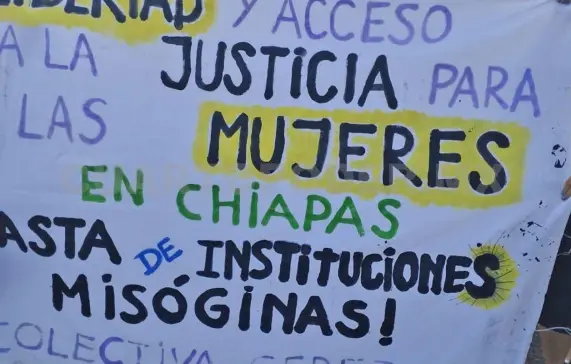 LIBERTAD Y ACCESO
A LA JUSTICIA PARA
LAS MUJERES
EN CHIAPAS
ASTA DE INSTITUCIONES
MISÓGINAS!
COLECTIVA